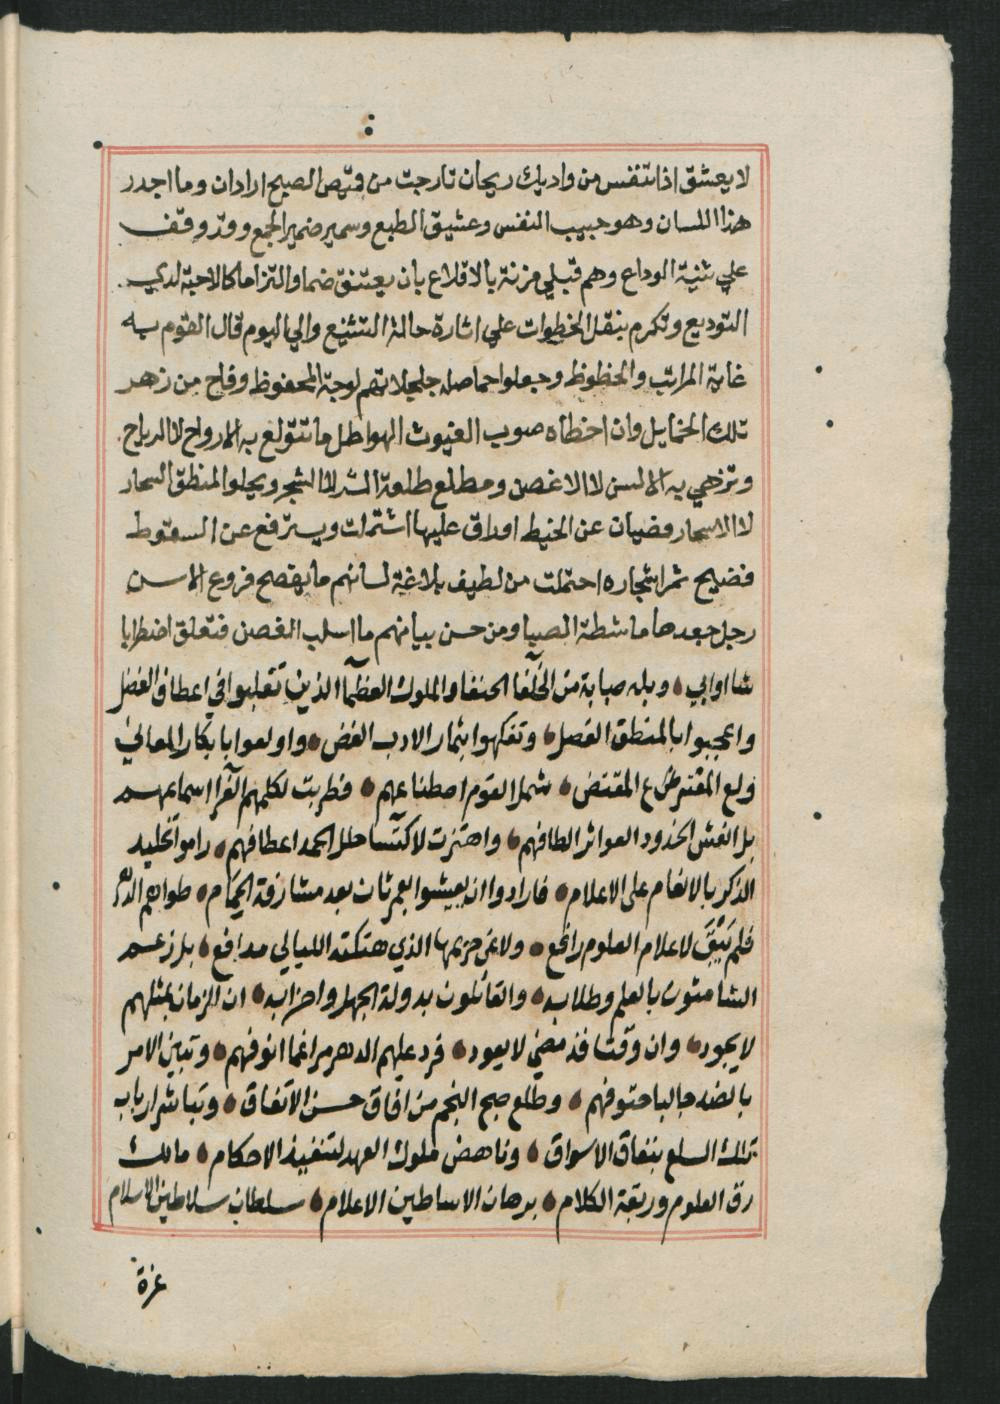 لا يعشق اذا تنفس من واديك ريحان تارجت من قميص الصبح اردان وما اجدر
هذا اللسان وهو حبيب النفس وعشيق الطبع وسمير ضمير الجمع وقد وقف
علي ثنية الوداع وهم قبلي مزنة بالاقلاع بان يعتنق ضما والتزاما كالاحبة لدي
التوديع وتكرم بنقل الخطوات علي اثاره حالة التشيع والي اليوم قال القوم به
غاية المراتب والحظوظ وجعلوا حماصله جلجلانهم لوحة المحفوظ وفاح من زهر
تلك الخمايل وان اخطاه صوب الغيوث الهواطل ما تتولع به الارواح لا الرياح
وتزهي به الالسن لا الاغصن ومطلع طلعة البشر لا الشجر ويجلو المنطق السحار
لا الاسحار وضيان عن الخبط اوراق عليها اشتملت ويترفع عن السقوط
فضيج ثمر اشجاره احتملت من لطيف بلاغة لسانهم ما يفصح فروع الاسن
رجل جعدها ماشطة الصبا ومن حسن بيانهم ما اسلب الغصن فتعلق اضطرابا
شا اوابي وبله صبابة من الخلفا الحنفا والملوك العظما الذين تقلبوا في اعطاف الفضل
واعجبوا بالمنطق الفصل وتفكهوا بثمار الادب الغض واولعوا بابكار المعاني
ولع المفترع المقتض شمل القوم اصطناعهم فطربت لكلمهم الغر اسماعهم
بل انعش الجدود العواثر الطافهم واهتزت لاكتسا حلل الحمد اعطافهم راموا تخليد
الذكر بالانعام على الاعلام فارادوا ان يعيشوا بعمر ثان بعد مشارفة الحمام طواهم الدهر
فلم يبق لاعلام العلوم رافع ولا عن حريمها الذي هتكته الليالي مدافع بل زعم
الشامتون بالعلم وطلابه والقائلون بدولة الجهل واحزابه ان الزمان بمثلهم
لا يجود وان وقتا قد مضي لا يعود فرد عليهم الدهر مراغما انوفهم وتبين الامر
بالضد جالبا حتوفهم وطلع صبح النجم من افاق حسن الاتفاق وتباشر ارباب
تلك السلع بنفاق الاسواق وناهض ملوك العهد لتنفيذ الاحكام مالك
رق العلوم وربقة الكلام برهان الاساطين الاعلام سلطان سلاطين الاسلام
غرة